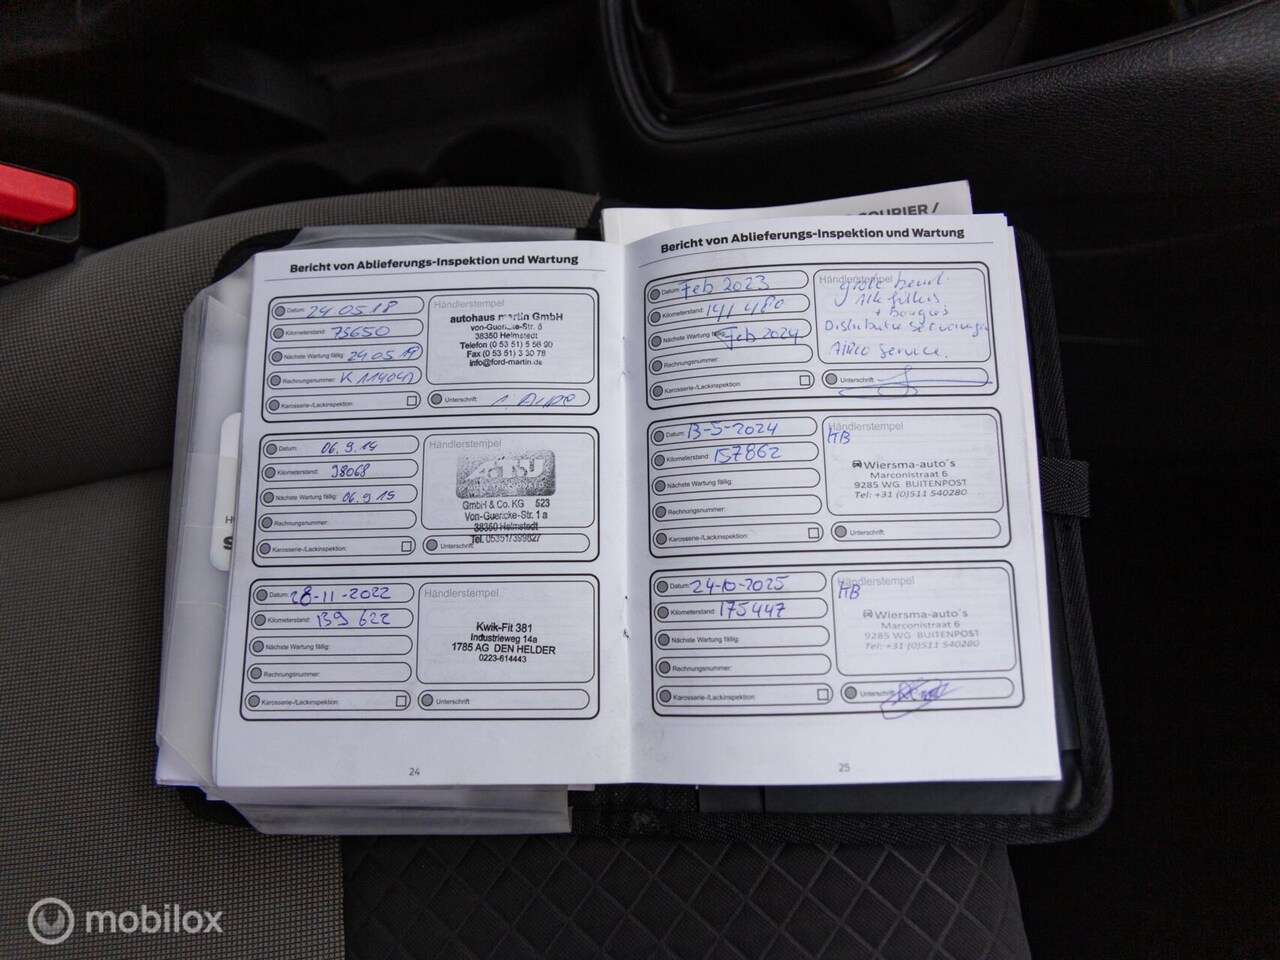 COURIER /
Bericht von Ablieferungs-Inspektion und Wartung
Datum: 24.05.18
Kilometerstand: 73650
Nächste Wartung fällig: 24.05.19
Rechnungsnummer:
Karosserie-/Lackinspektion:
Händlerstempel
autohaus martin GmbH
von-Guericke-Str. 8
38350 Helmstedt
Telefon (0 53 51) 5 56 90
Fax (0 53 51) 3 30 78
info@ford-martin.de
Unterschrift:
Datum: 06.9.19
Kilometerstand: 98068
Nächste Wartung fällig: 06.9.
Rechnungsnummer:
Karosserie-/Lackinspektion:
Händlerstempel
GmbH & Co. KG 523
Von-Guericke-Str. 1 a
38350 Helmstedt
Tel. 05351/399827
Unterschrift:
Datum: 28-11-2022
Kilometerstand: 139 622
Nächste Wartung fällig:
Rechnungsnummer:
Karosserie-/Lackinspektion:
Händlerstempel
Kwik-Fit 381
Industrieweg 14a
1785 AG DEN HELDER
0223-614443
Unterschrift:
24
Bericht von Ablieferungs-Inspektion und Wartung
Datum: Feb 2023
Kilometerstand: 141 480
Nächste Wartung fällig: Feb 2024
Rechnungsnummer:
Karosserie-/Lackinspektion:
Händlerstempel
grote beurt.
Alle filters
+ Bougies
Distributie set vervangen
AIRCO Service.
Unterschrift:
Datum: 13-5-2024
Kilometerstand: 157862
Nächste Wartung fällig:
Rechnungsnummer:
Karosserie-/Lackinspektion:
Händlerstempel
HB
Wiersma-auto's
Marconistraat 6
9285 WG BUITENPOST
Tel: +31 (0)511 540280
Unterschrift:
Datum: 24-10-2025
Kilometerstand: 175447
Nächste Wartung fällig:
Rechnungsnummer:
Karosserie-/Lackinspektion:
Händlerstempel
HB
Wiersma-auto's
Marconistraat 6
9285 WG BUITENPOST
Tel: +31 (0)511 540280
Unterschrift:
25
mobilox